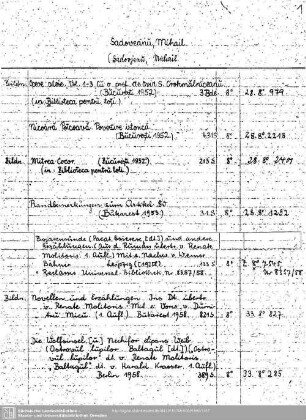 1
Sadoveanu, Mihail
(Sadovjanu, Mihail
Bildn. Opere alese. Vol. 1-3. Cu o pref. de Ovid S. Crohmălniceanu
(București 1952) 3 Bde. 8° 28. 8° 979
(in: Biblioteca pentru toți.)
Nicoară Potcoavă. Povestire istorică
(București 1952) 431 S 8° 28. 8° 2213
Bildn. Mitrea Cocor. (București 1952). 215 S 8°
(in: Biblioteca pentru toți.)
Randbemerkungen zum
(Bukarest 1953) 31 S 8° 28. 8° 1232
Bojarensünde und andere
Erzählungen (Aus d. Rumän. übertr. v. Renate
Molitoris. 1. Aufl.) Mit e. Nachw. v. Werner
Bahner Leipzig (1958). S 8°
Reclams Universal-Bibliothek Nr. 8187/88.
Bildn. Novellen und Erzählungen Ins Dt. übertr.
v. Renate Molitoris. Mit e. Vorw. v. Dumi-
tru Micu (1. Aufl.) Bukarest 1958. 8° 33. 8° 827
Die Wolfsinsel [u.] Nechifor Lipans Weib
(Ostrovul lupilor. Baltagul [dt.]) („Ostro-
vul lupilor“ dt. v. Renate Molitoris,
„Baltagul“ dt. v. Harald Krasser. 1. Aufl.)
Berlin 1958. 389 S 8° 33. 8° 285.